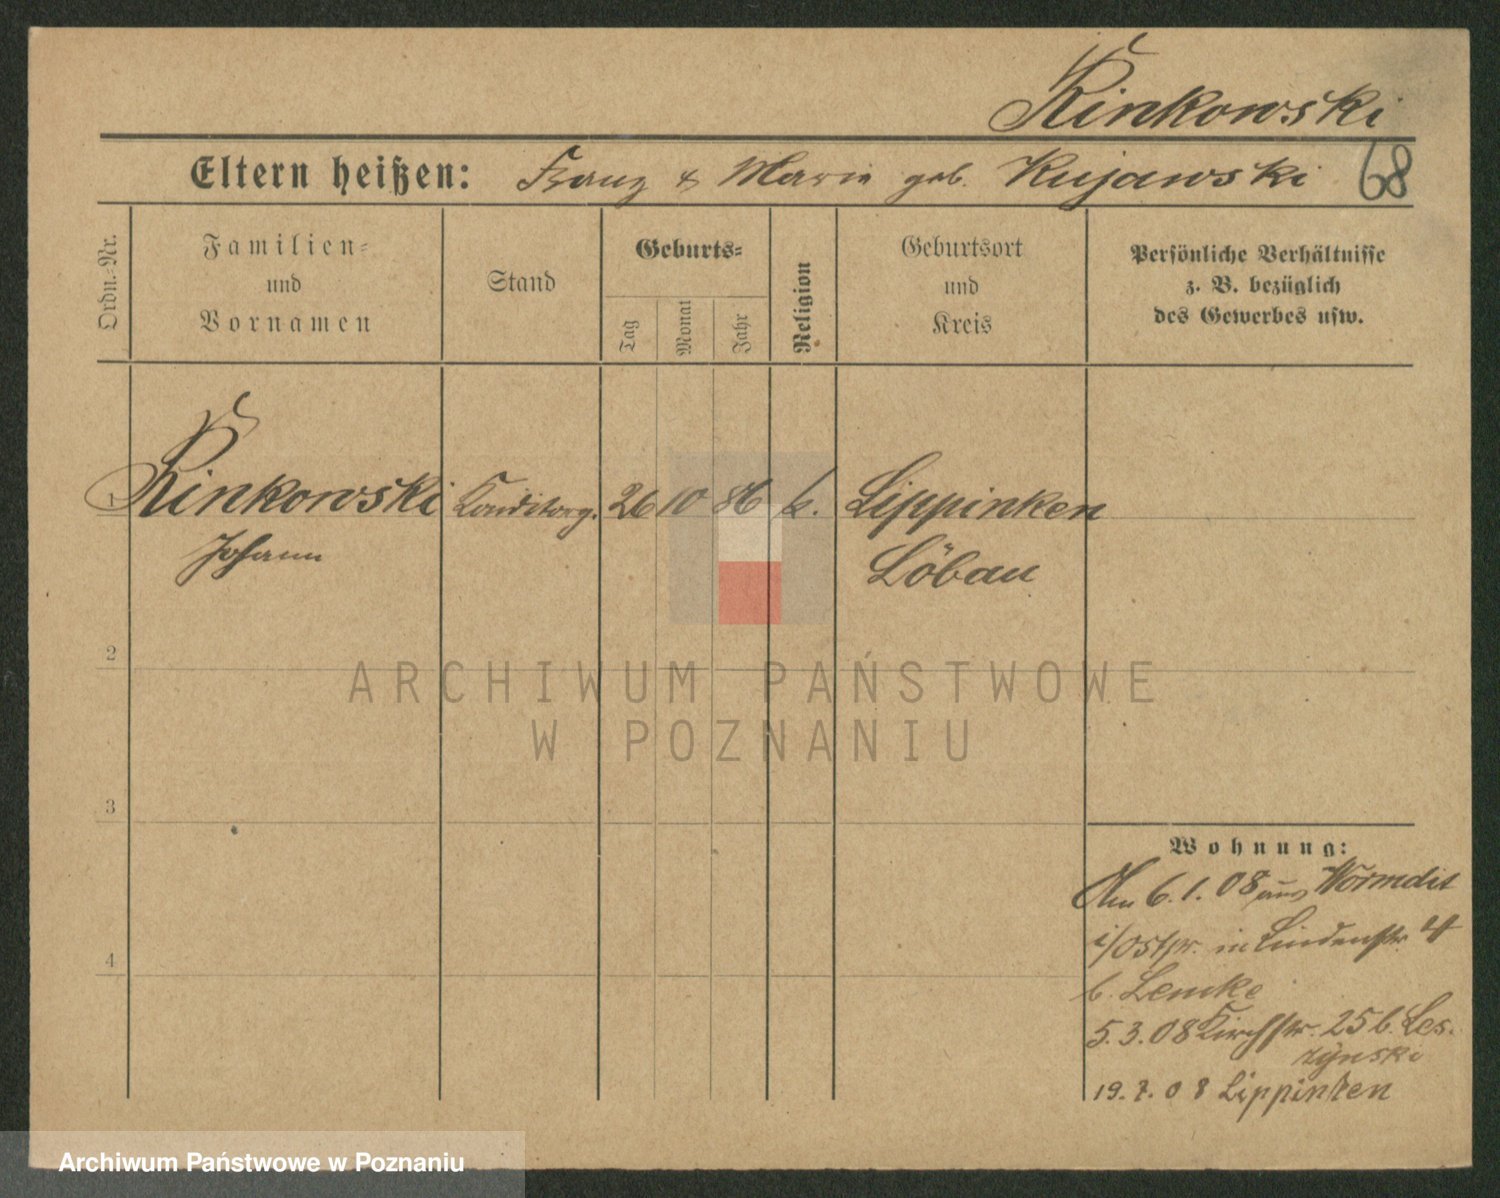 Kinkowski
Eltern heißen: Franz & Marie geb. Kujawski 68
Ordn.-Nr.
Familien-
und
Vornamen
Stand
Geburts-
Tag
Monat
Jahr
Religion
Geburtsort
und
Kreis
Persönliche Verhältnisse
z. B. bezüglich
des Gewerbes usw.
1 Kinkowski Konditorg. 26 10 86 k. Lippinken
Johann Löbau
2
3
4
Wohnung:
Am 6.1.08 aus Wormdit
i/Ostpr. in Lindenstr. 4
b. Lemke
5.3.08 Kirchstr. 25 b. Les-
zynski
19.7.08 Lippinken
ARCHIWUM PAŃSTWOWE
W POZNANIU
Archiwum Państwowe w Poznaniu